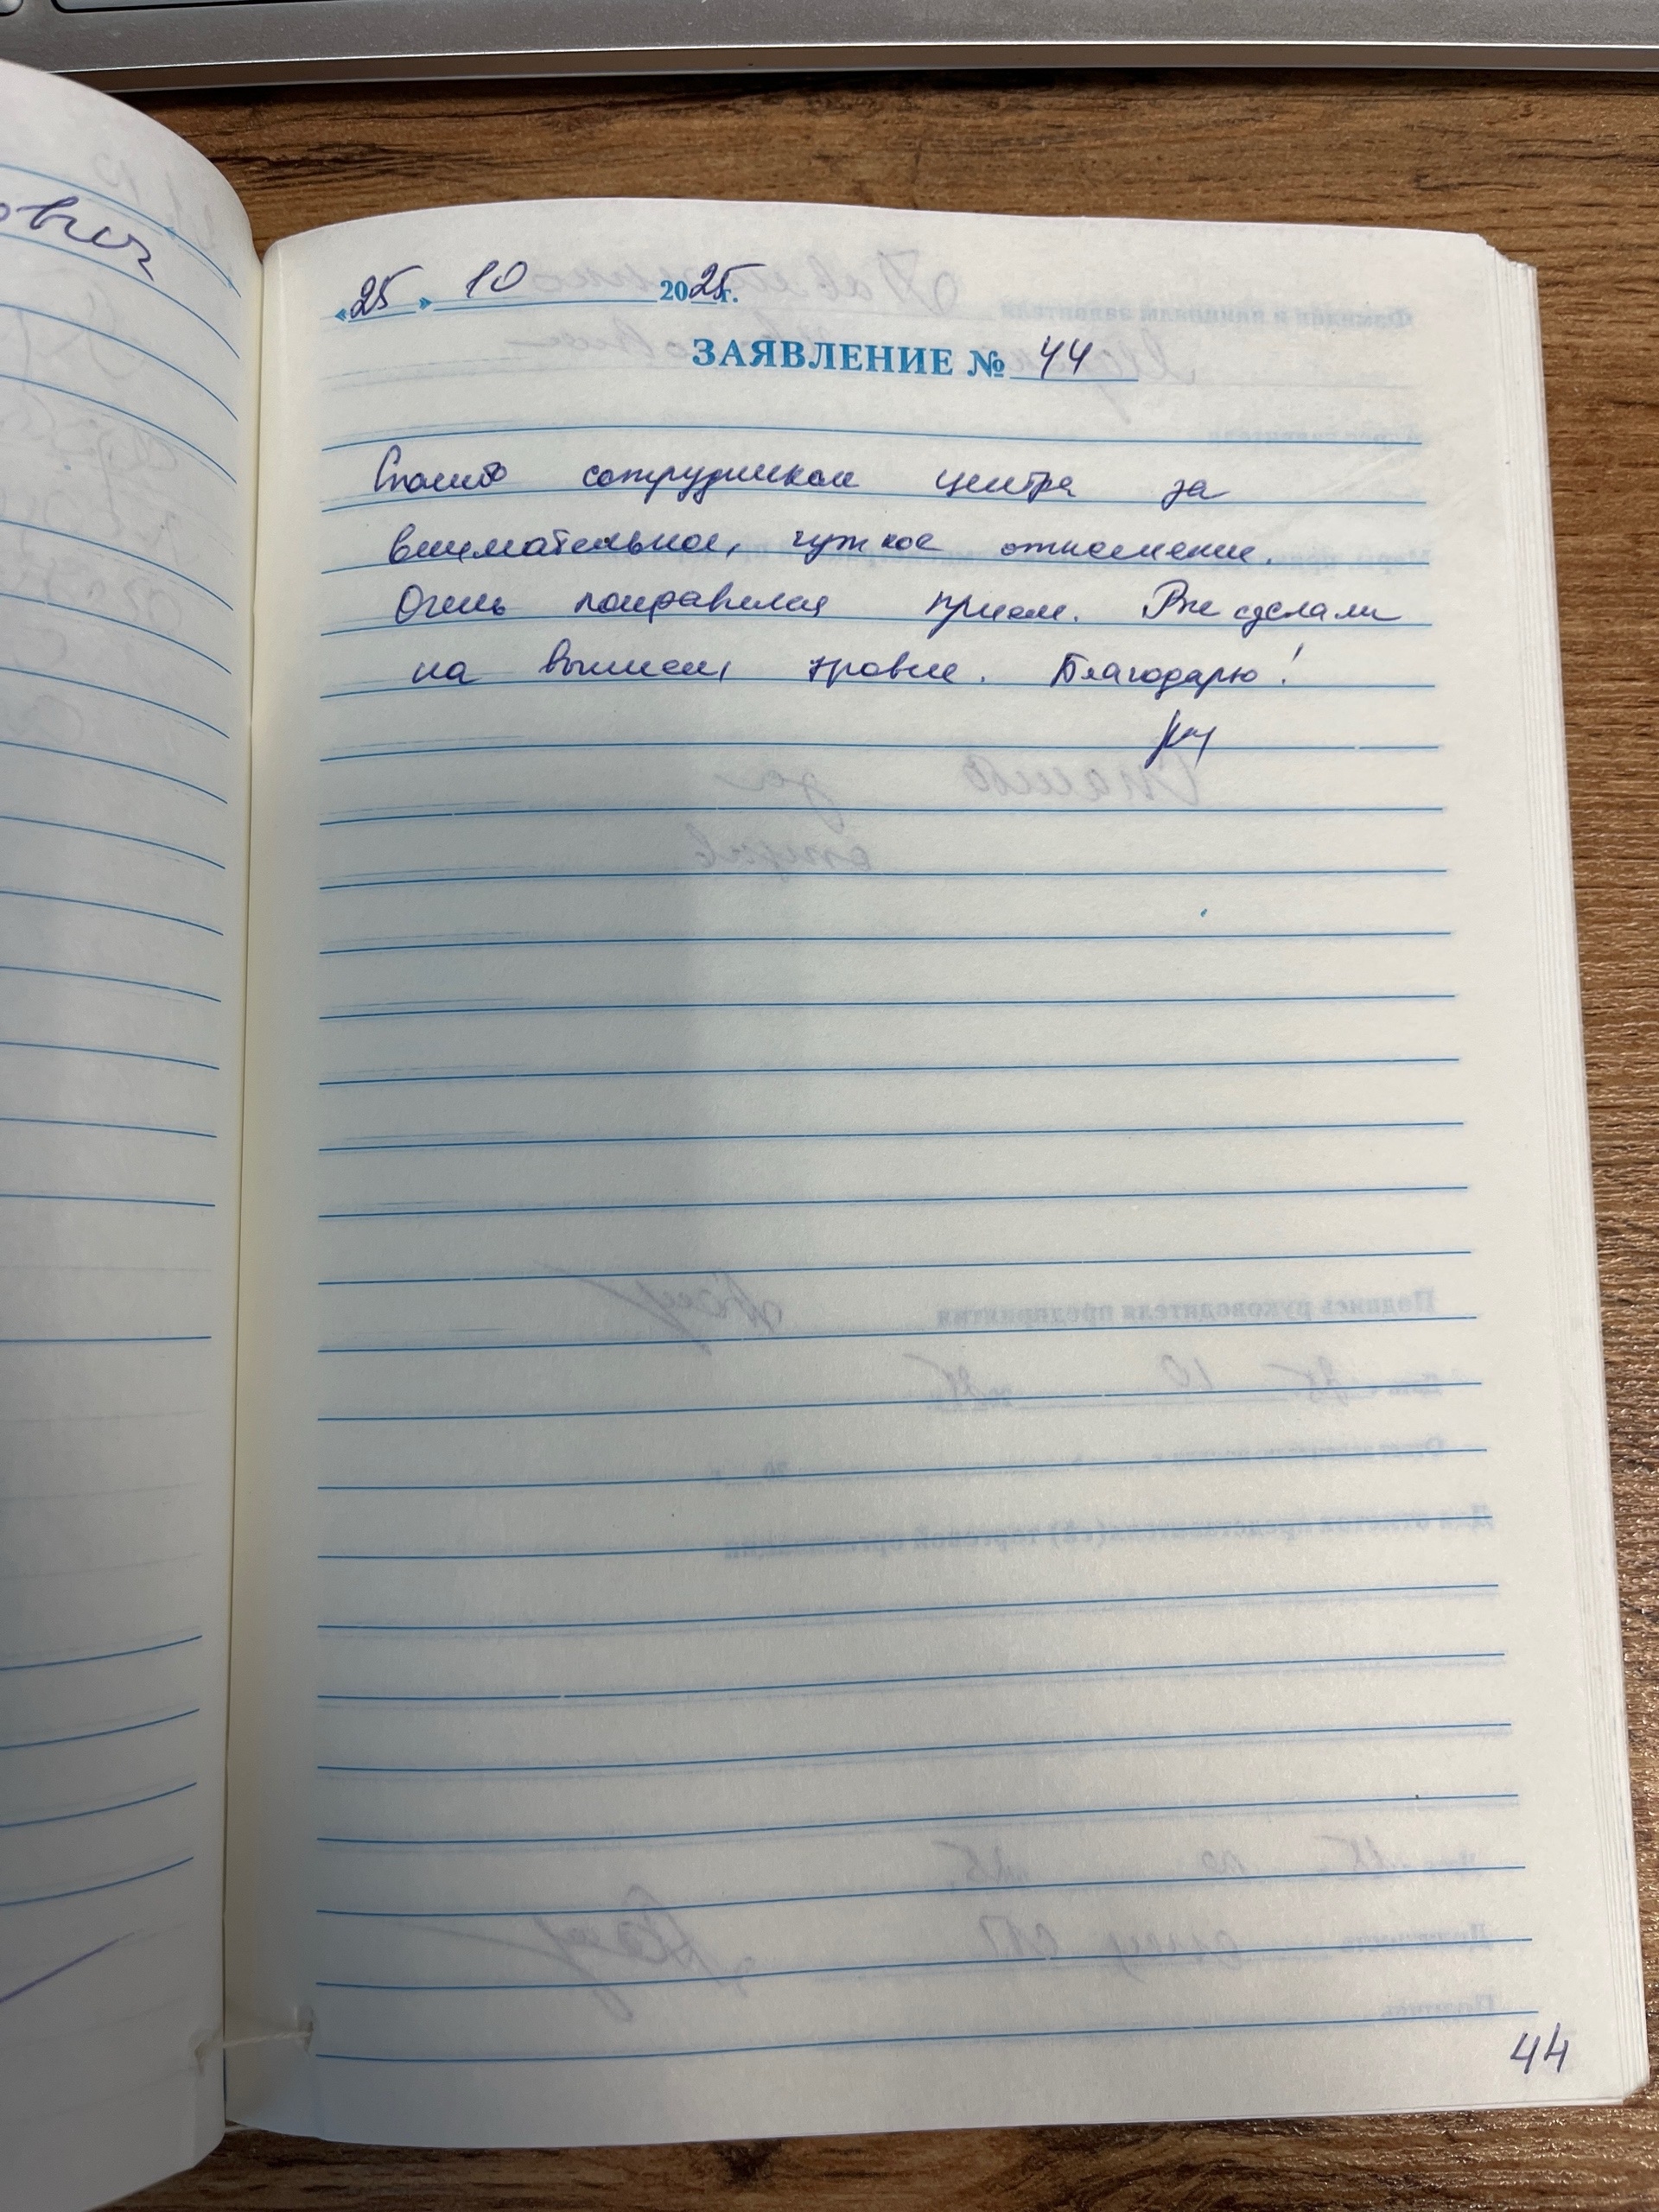 «25» 10 2025г.
ЗАЯВЛЕНИЕ № 44
Спасибо сотрудникам центра за
внимательное, чуткое отношение.
Очень понравился прием. Все сделали
на высшем уровне. Благодарю!
44